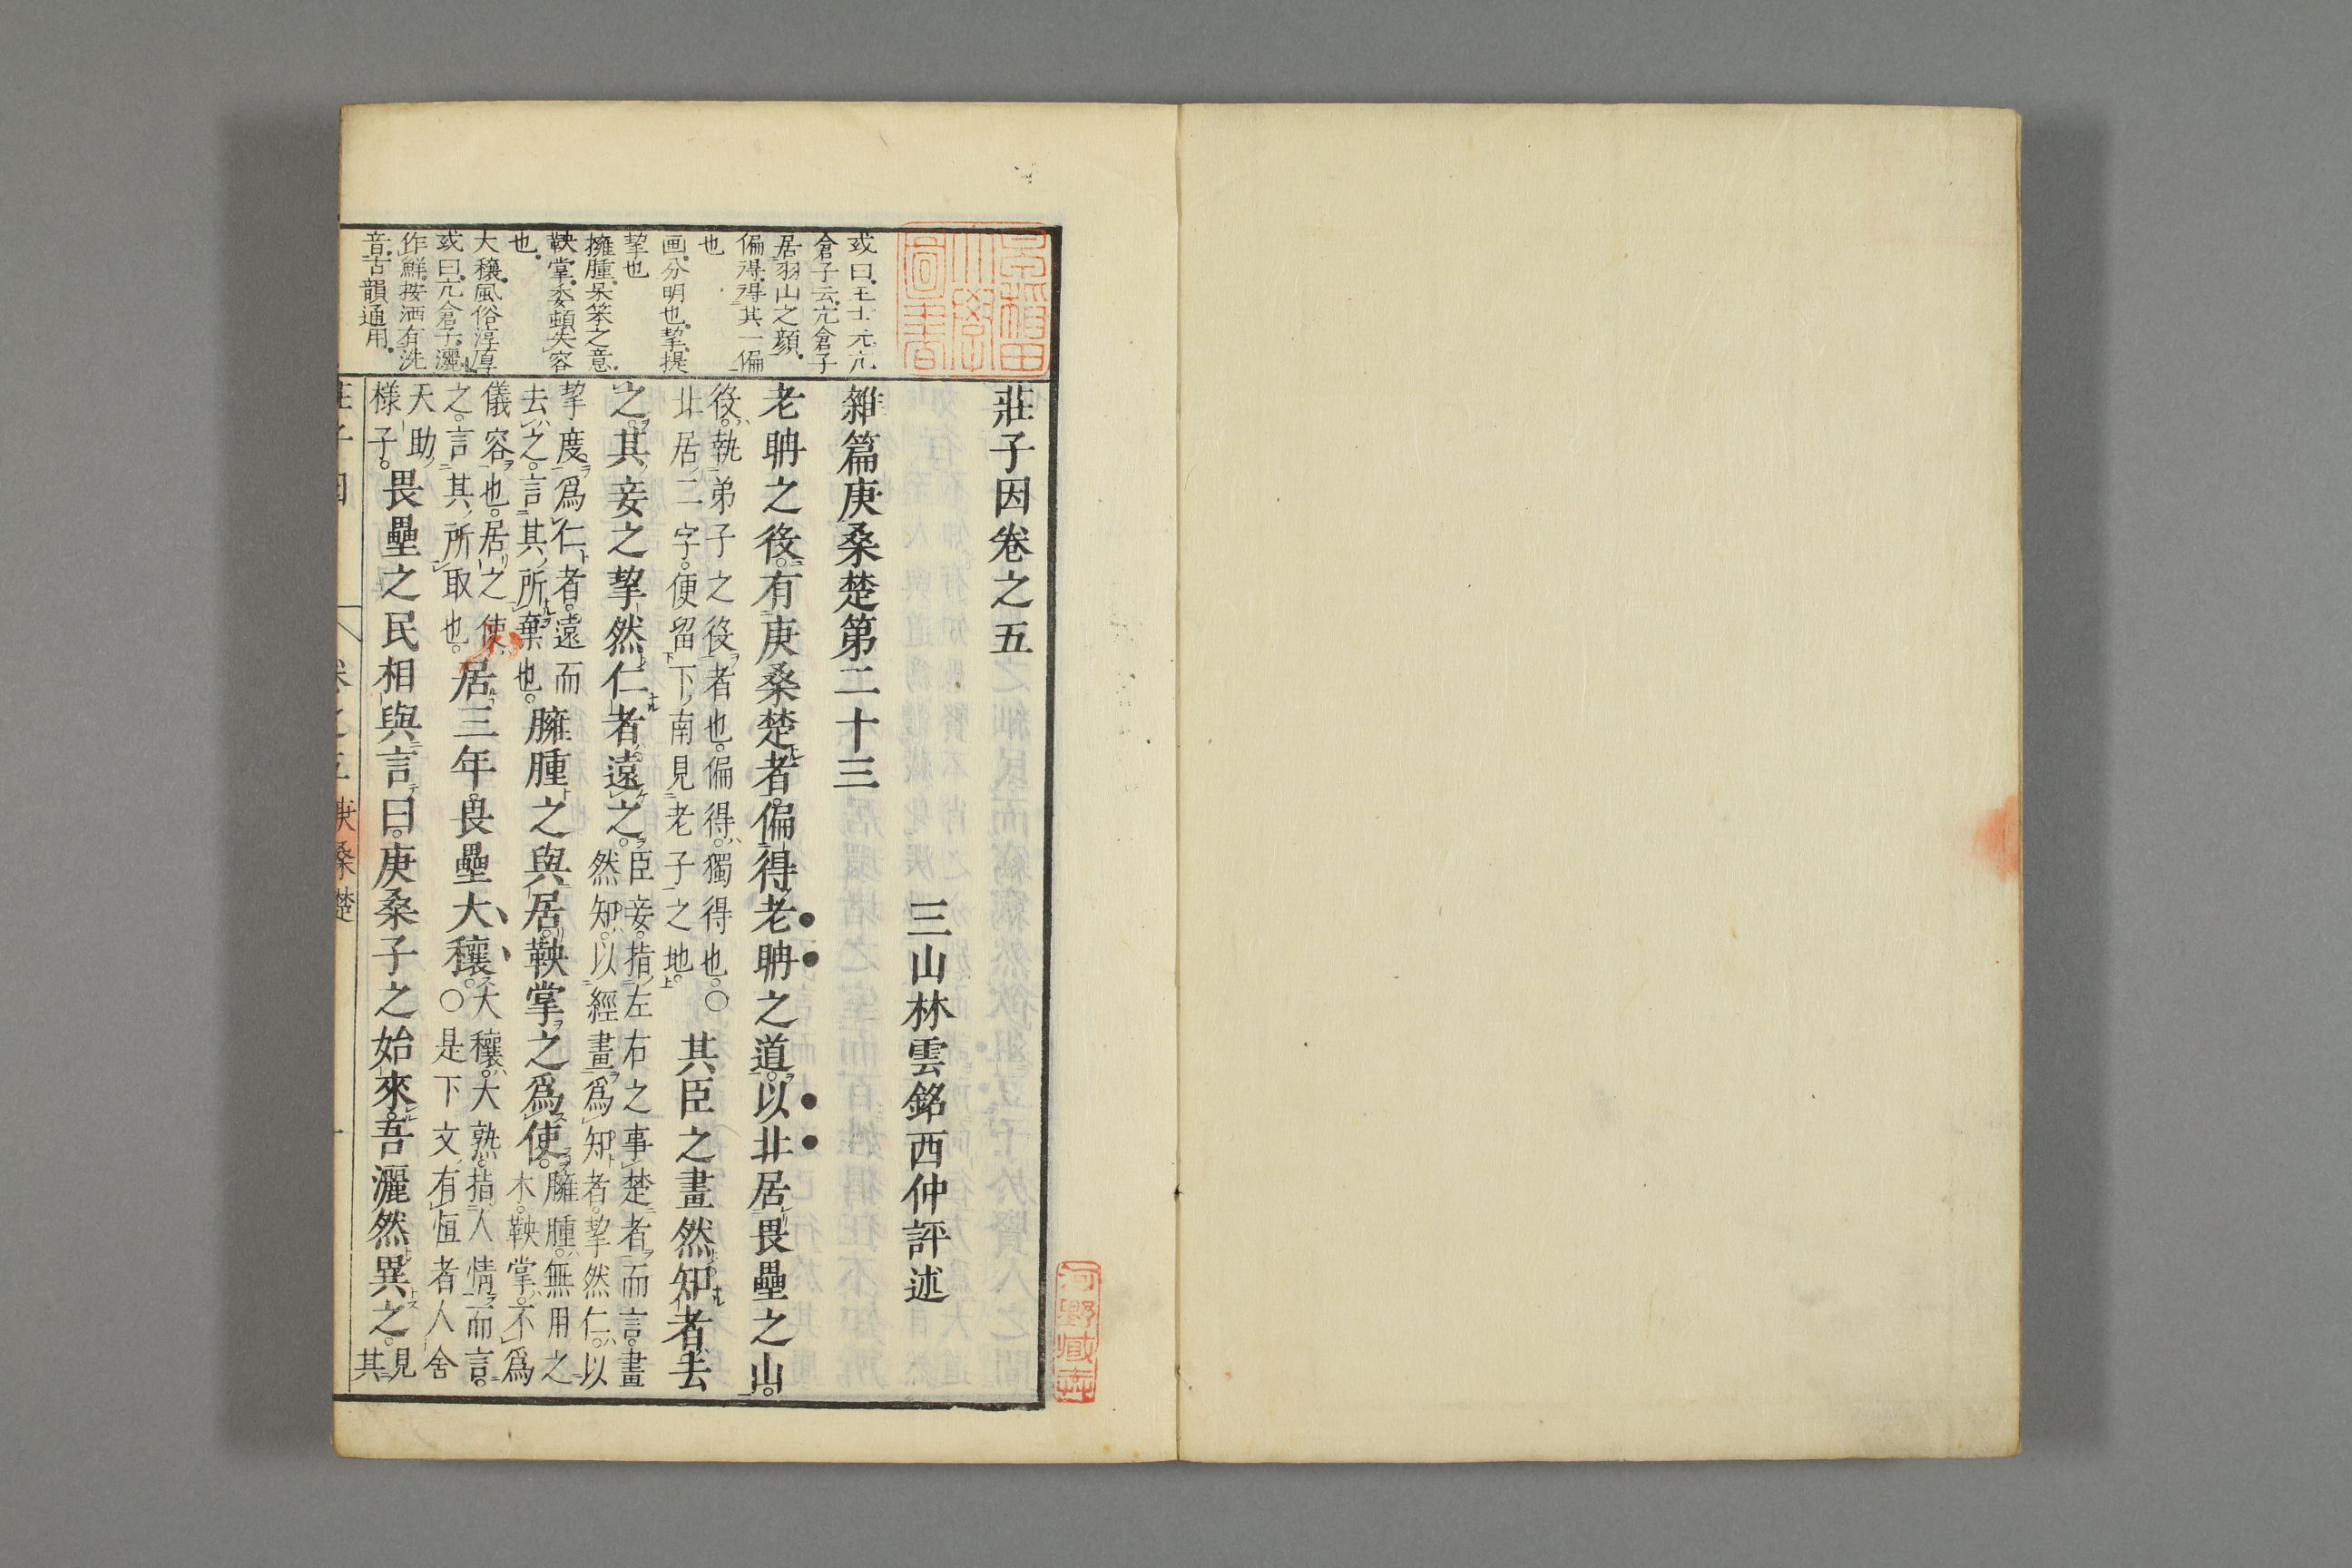 早稲田
大學
圖書
或曰王士元亢
倉子云亢倉子
居羽山之顔
偏得得其一偏
也
画分明也挈提
挈也
擁腫呆笨之意
鞅掌委頓失容
也
大穰風俗淳厚
或曰亢倉子灑
作鮮按洒有洗
音古韻通用
莊子因卷之五
三山林雲銘西仲評述
雜篇庚桑楚第二十三
老聃之役。有庚桑楚者。偏得老聃之道。以北居畏壘之山。
役。執弟子之役者也。偏得。獨得也。〇
北居二字。便留下南見老子之地。
其臣之畫然知者去
之。其妾之挈然仁者遠之。
臣妾。指左右之事楚者而言。畫
然知。以經畫爲知者。挈然仁。以
挈度爲仁者。遠而
去之。言其所棄也。
臃腫之與居。鞅掌之爲使。
臃腫。無用之
木。鞅掌。不爲
儀容也。居之使
之。言其所取也。
居三年。畏壘大穰。
大穰。大熟。指人情而言。
〇是下文有恒者人舍
天助
様子。
畏壘之民相與言曰。庚桑子之始來。吾灑然異之。
見
其
莊子因
卷之五 庚桑楚
一